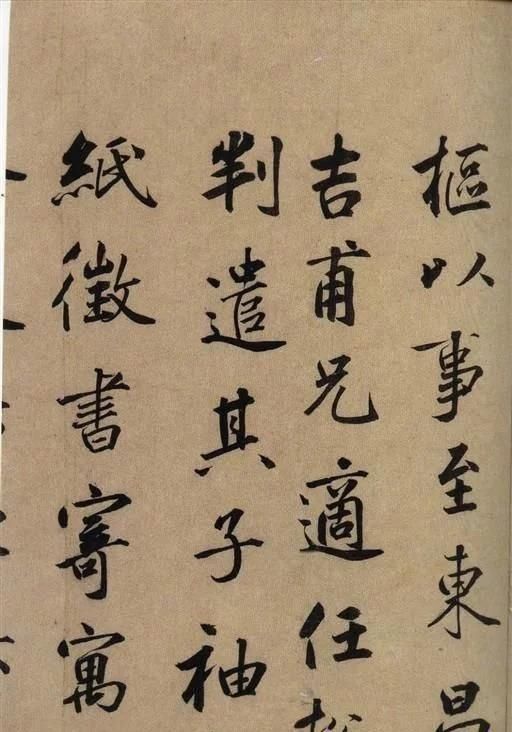 樞以事至東昌
吉甫兄適任
判遣其子袖
紙徵書寄寓